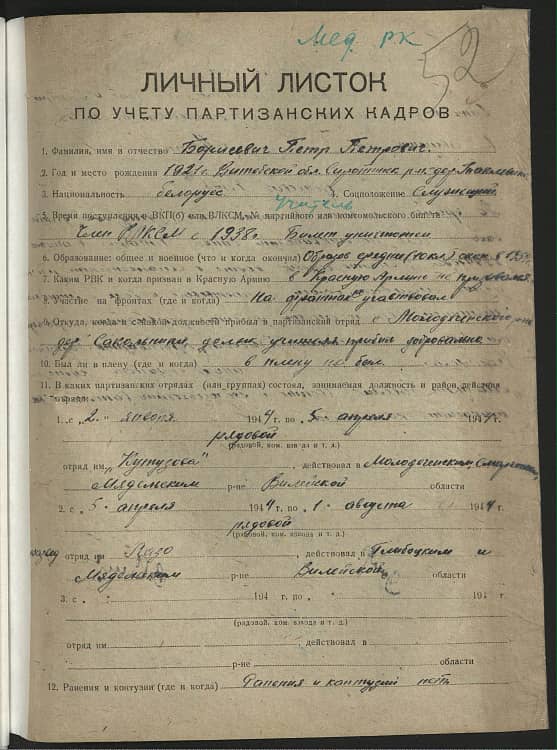 Мед. рк
52
ЛИЧНЫЙ ЛИСТОК
ПО УЧЕТУ ПАРТИЗАНСКИХ КАДРОВ
1. Фамилия, имя и отчество Борисевич Петр Петрович.
2. Год и место рождения 1921 г. Витебской обл.
3. Национальность белорус 4. Соцположение Служащий
учитель
5. Время поступления в ВКП(б) или ВЛКСМ, № партийного или комсомольского билета
Член ВЛКСМ с 1938 г. Билет уничтожен
6. Образование: общее и военное (что и когда окончил)
7. Каким РВК и когда призван в Красную Армию в Красную Армию не призывался
8. Участие на фронтах (где и когда) На фронтах не участвовал
9. Откуда, когда и с какой должности прибыл в партизанский отряд с Молодеченского
дер. Сакольники, учителя прибыл добровольно
10. Был ли в плену (где и когда) в плену не был.
11. В каких партизанских отрядах (или группах) состоял, занимаемая должность и район действия
1. с „2" января 1944 г. по 5 апреля 1944 г.
рядовой
(рядовой, ком. взвода и т. д.)
отряд им. „Кутузова" действовал в Молодеченским,
Мядельским р-не Вилейской области
2. с „5 апреля 1944 г. по „1 августа 1944
рядовой
(рядовой, ком. взвода и т. д.)
отряд им Лазо действовал в Глибоцким и
Мядельским р-не Вилейской области
3. с „ 194 г. по „ 194 г
(рядовой, ком. взвода и т. д.)
отряд им действовал в
р-не области
12. Ранения и контузии (где и когда) Ранения и контузий нет